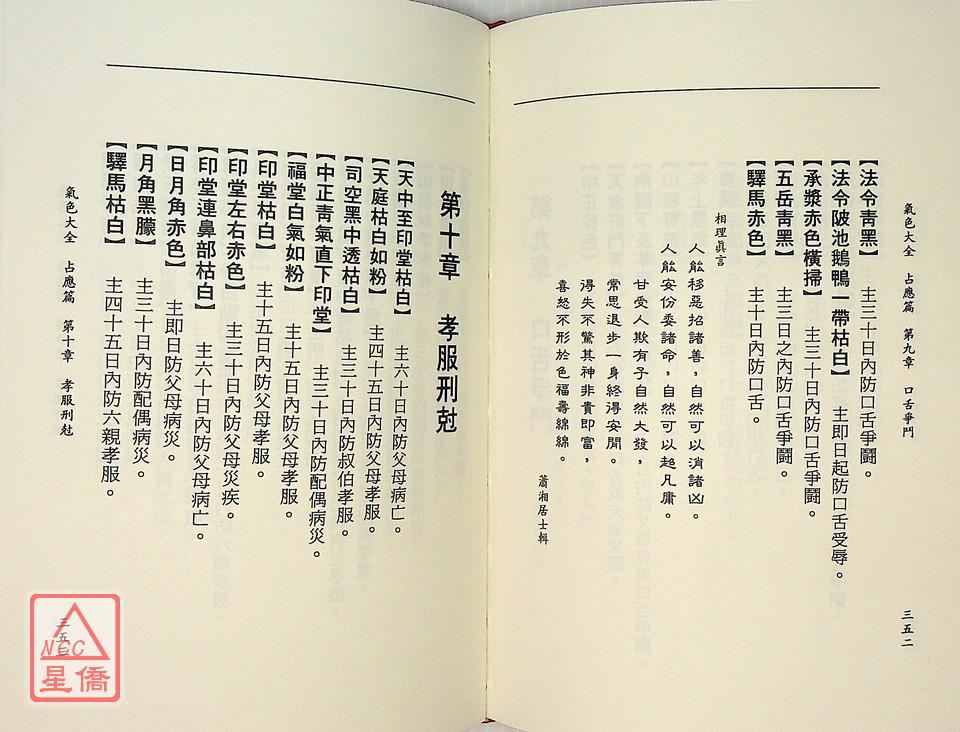 氣色大全　占應篇　第九章　口舌爭鬥
三五二
【法令靑黑】　主三十日內防口舌爭鬪。
【法令陂池鵝鴨一帶枯白】　主即日起防口舌受辱。
【承漿赤色橫掃】　主三十日內防口舌爭鬪。
【五岳靑黑】　主三日之內防口舌爭鬪。
【驛馬赤色】　主十日內防口舌。
相理眞言
人能移惡招諸善，自然可以消諸凶。
人能安份委諸命，自然可以起凡庸。
甘受人欺有子自然大發，
常思退步一身終得安閒。
得失不驚其神非貴即富，
喜怒不形於色福壽綿綿。
蕭湘居士輯
第十章　孝服刑尅
【天中至印堂枯白】　主六十日內防父母病亡。
【天庭枯白如粉】　主四十五日內防父母孝服。
【司空黑中透枯白】　主三十日內防叔伯孝服。
【中正靑氣直下印堂】　主三十日內防配偶病災。
【福堂白氣如粉】　主十五日內防父母孝服。
【印堂枯白】　主十五日內防父母孝服。
【印堂左右赤色】　主三十日內防父母災疾。
【印堂連鼻部枯白】　主六十日內防父母病亡。
【日月角赤色】　主即日防父母病災。
【月角黑朦】　主三十日內防配偶病災。
【驛馬枯白】　主四十五日內防六親孝服。
氣色大全　占應篇　第十章　孝服刑尅
三五三
NCC
星僑